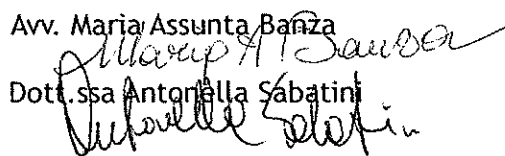 Avv. Maria Assunta Banza
Maria A Banza
Dott.ssa Antonella Sabatini
Antonella Sabatini